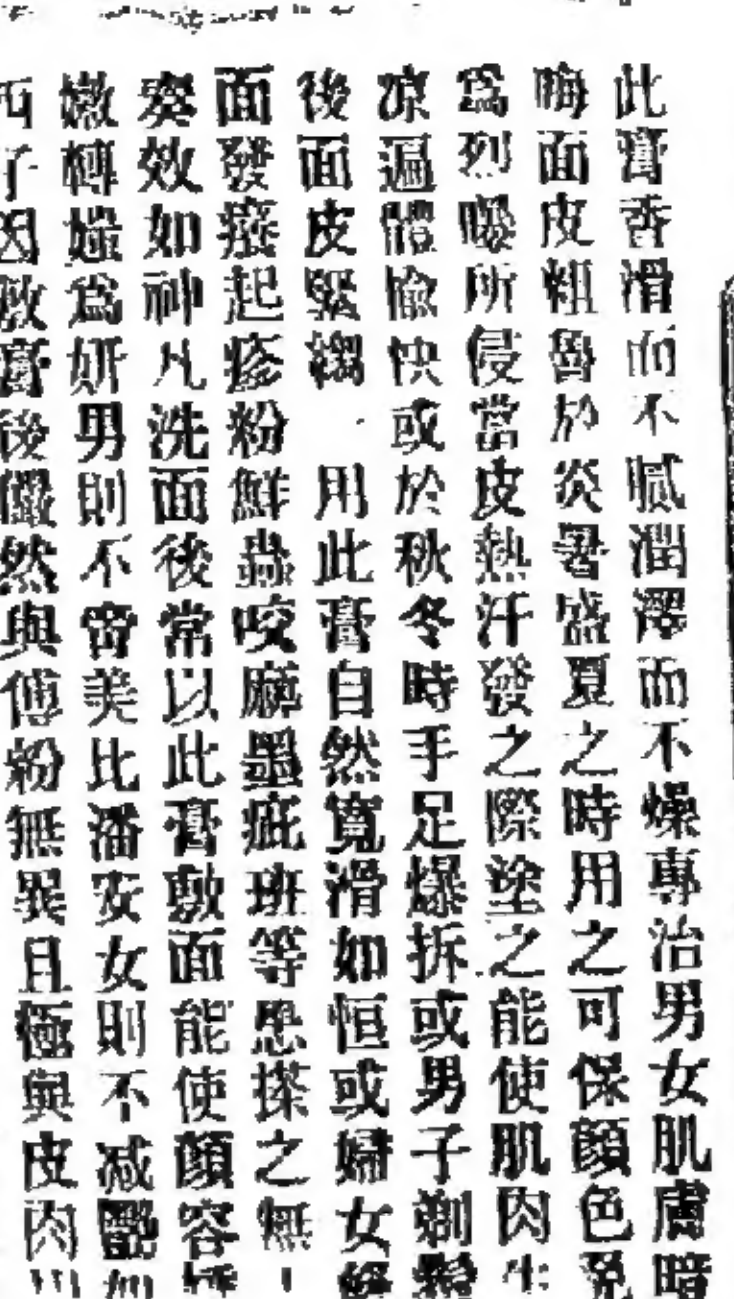 此膏香滑而不膩潤澤而不燥專治男女肌膚暗
晦面皮粗魯於炎暑盛夏之時用之可保顏色免
爲烈曝所侵當皮熱汗發之際塗之能使肌肉生
凉遍體愉快或於秋冬時手足爆拆或男子剃鬚
後面皮緊縐 用此膏自然寬滑如恒或婦女
面發瘰起疹粉鮮蟲咬麻墨疵班等患搽之無
奏效如神凡洗面後常以此膏敷面能使顏容
嫩轉媸爲妍男則不啻美比潘安女則不减艷如
西子因敷膏後儼然與傅粉無異且極與皮肉